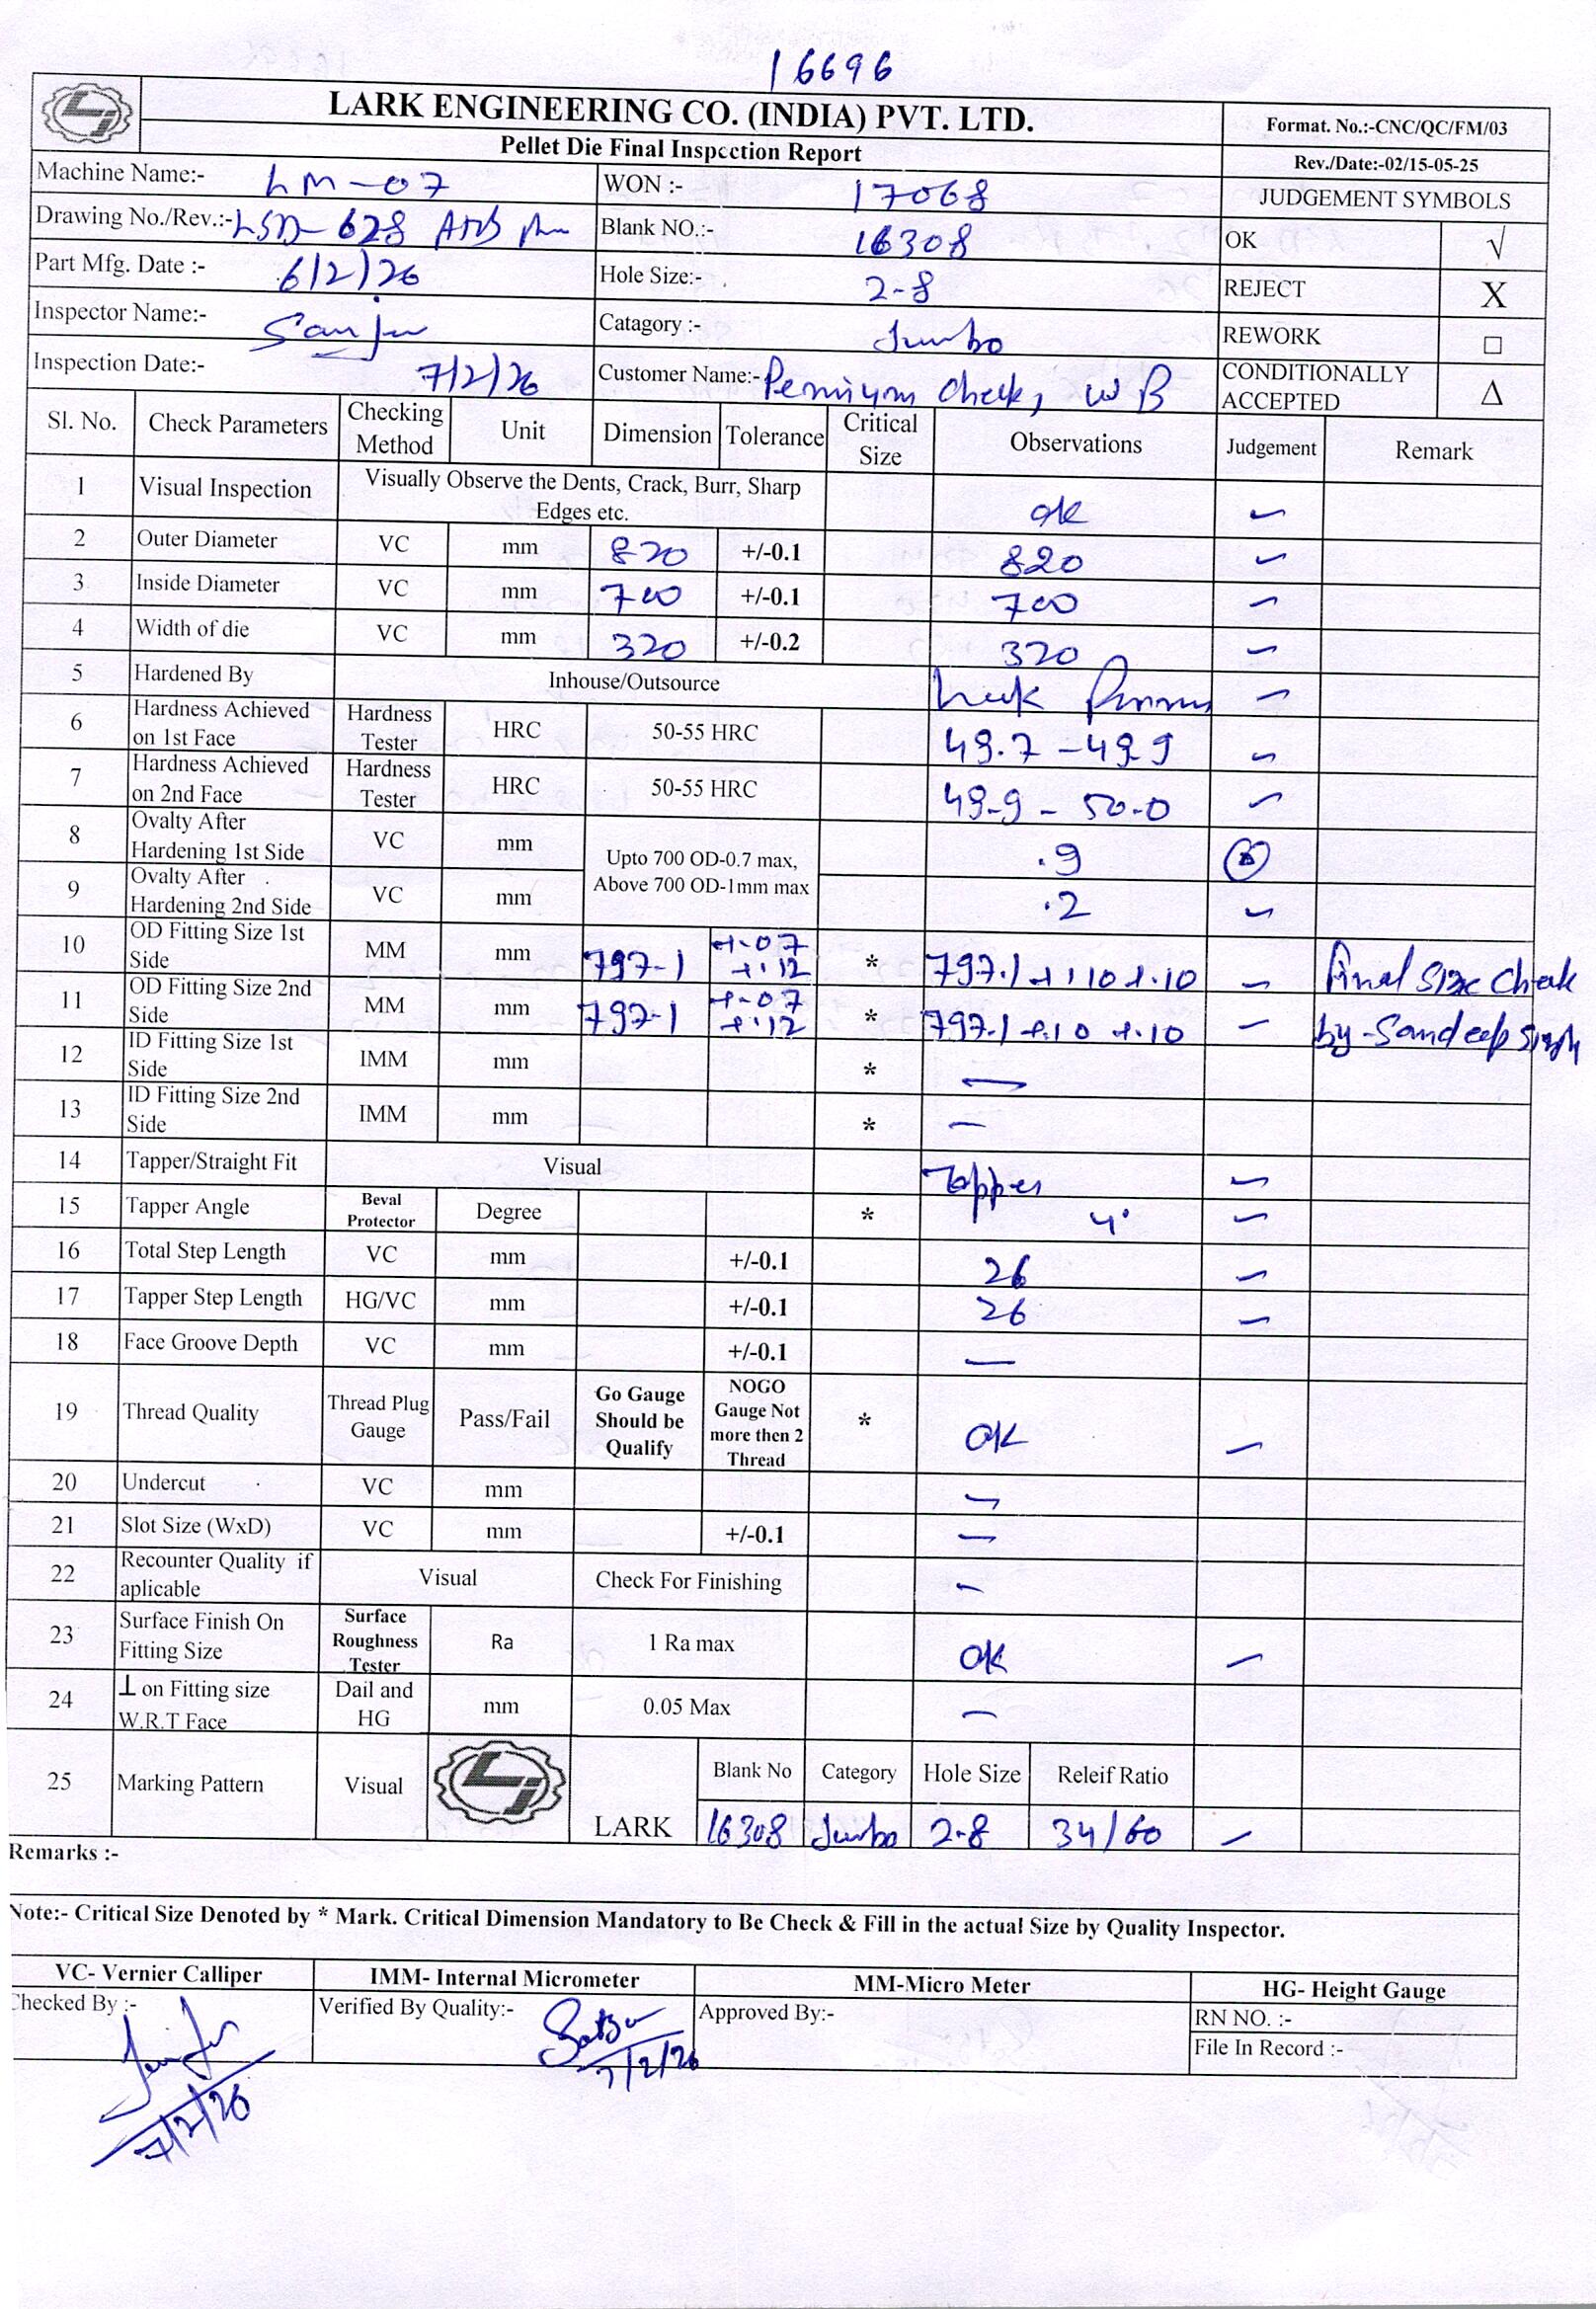 16696
LARK ENGINEERING CO. (INDIA) PVT. LTD.
Format. No.:-CNC/QC/FM/03
Pellet Die Final Inspection Report
Rev./Date:-02/15-05-25
Machine Name:- LM-07 WON :- 17068 JUDGEMENT SYMBOLS
Drawing No./Rev.:- LSD-628 Blank NO.:- 16308 OK √
Part Mfg. Date :- 6/2/26 Hole Size:- 2-8 REJECT X
Inspector Name:- Sanju Catagory :- Jumbo REWORK □
Inspection Date:- 7/2/26 Customer Name:- W B CONDITIONALLY ACCEPTED Δ
Sl. No. Check Parameters Checking Method Unit Dimension Tolerance Critical Size Observations Judgement Remark
1 Visual Inspection Visually Observe the Dents, Crack, Burr, Sharp Edges etc. ok
2 Outer Diameter VC mm 820 +/-0.1 820
3 Inside Diameter VC mm 700 +/-0.1 700
4 Width of die VC mm 320 +/-0.2 320
5 Hardened By Inhouse/Outsource
6 Hardness Achieved on 1st Face Hardness Tester HRC 50-55 HRC 49.7 - 49.9
7 Hardness Achieved on 2nd Face Hardness Tester HRC 50-55 HRC 49-9 - 50-0
8 Ovalty After Hardening 1st Side VC mm Upto 700 OD-0.7 max, Above 700 OD-1mm max .9
9 Ovalty After Hardening 2nd Side VC mm .2
10 OD Fitting Size 1st Side MM mm 797-1 +.07 +.12 * 797.1 +.10 +.10 final size check
11 OD Fitting Size 2nd Side MM mm 797-1 +.07 +.12 * 797.1 +.10 +.10 by-Sandeep Singh
12 ID Fitting Size 1st Side IMM mm * —
13 ID Fitting Size 2nd Side IMM mm * —
14 Tapper/Straight Fit Visual Tapper
15 Tapper Angle Beval Protector Degree * 4°
16 Total Step Length VC mm +/-0.1 26
17 Tapper Step Length HG/VC mm +/-0.1 26
18 Face Groove Depth VC mm +/-0.1 —
19 Thread Quality Thread Plug Gauge Pass/Fail Go Gauge Should be Qualify NOGO Gauge Not more then 2 Thread * OK
20 Undercut VC mm —
21 Slot Size (WxD) VC mm +/-0.1 —
22 Recounter Quality if aplicable Visual Check For Finishing —
23 Surface Finish On Fitting Size Surface Roughness Tester Ra 1 Ra max OK
24 ⊥ on Fitting size W.R.T Face Dail and HG mm 0.05 Max —
25 Marking Pattern Visual LARK Blank No Category Hole Size Releif Ratio
16308 Jumbo 2-8 34/60
Remarks :-
Note:- Critical Size Denoted by * Mark. Critical Dimension Mandatory to Be Check & Fill in the actual Size by Quality Inspector.
VC- Vernier Calliper IMM- Internal Micrometer MM-Micro Meter HG- Height Gauge
Checked By :- Verified By Quality:- Approved By:- RN NO. :-
File In Record :-
7/2/26
7/2/26